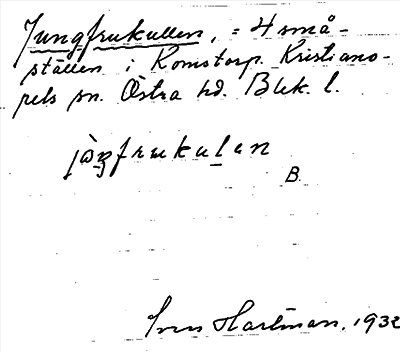 Jungfrukullen, = 4 små-
ställen i Komstorp. Kristiano-
pels sn. Östra hd. Blek. l.
jòŋfrukulen
B.
Sven Hartman, 1932